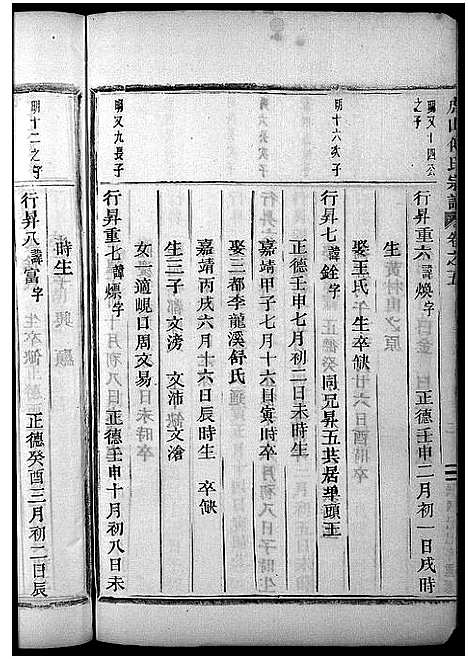 明又十四公之子
行昇重六諱煥字 正德壬申二月初一日戌時
生
娶王氏 生卒缺
明十六次子
行昇七諱銓字 同兄昇五共居畢頭王
正德壬申七月初二日未時生
嘉靖甲子七月十六日寅時卒
娶三都李龍溪舒氏
嘉靖丙戌六月十六日辰時生 卒缺
生三子 文滂 文沛 文滄
女一 適峴口周文易
明又九長子
行昇重七諱熛字 正德壬申十月初八日未
時生
明十二之子
行昇八諱富字 正德癸酉三月初二日辰